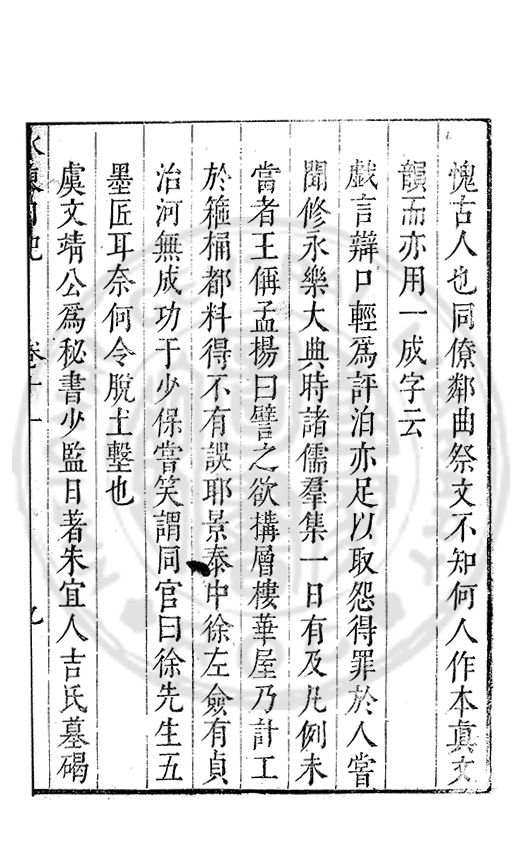 愧古人也同僚鄰曲祭文不知何人作本真文
韻而亦用一成字云
戲言辯口輕爲評泊亦足以取怨得罪於人嘗
聞修永樂大典時諸儒羣集一日有及凡例未
當者王偁孟揚曰譬之欲構層樓華屋乃計工
於箍桶都料得不有誤耶景泰中徐左僉有貞
治河無成功于少保嘗笑謂同官曰徐先生五
墨匠耳奈何令脫土墼也
虞文靖公爲秘書少監日著朱宜人吉氏墓碣
水東日記 卷十一 九